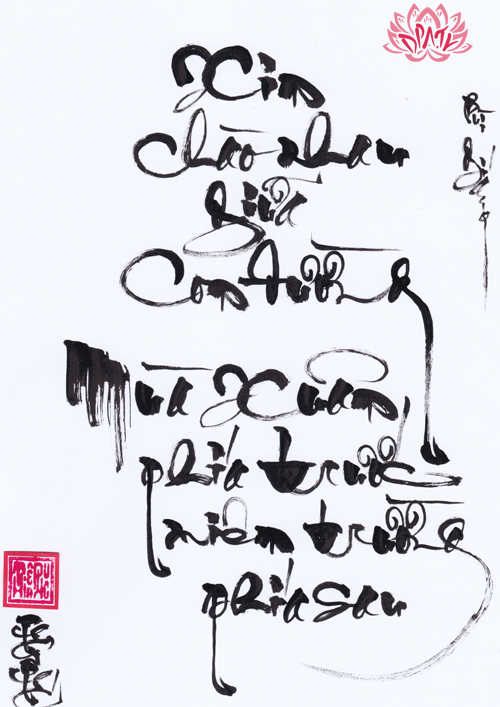 Xin
chào nhau
giữa
Con đường
Mùa Xuân
phía trước
miên trường
phía sau
Bùi Giáng